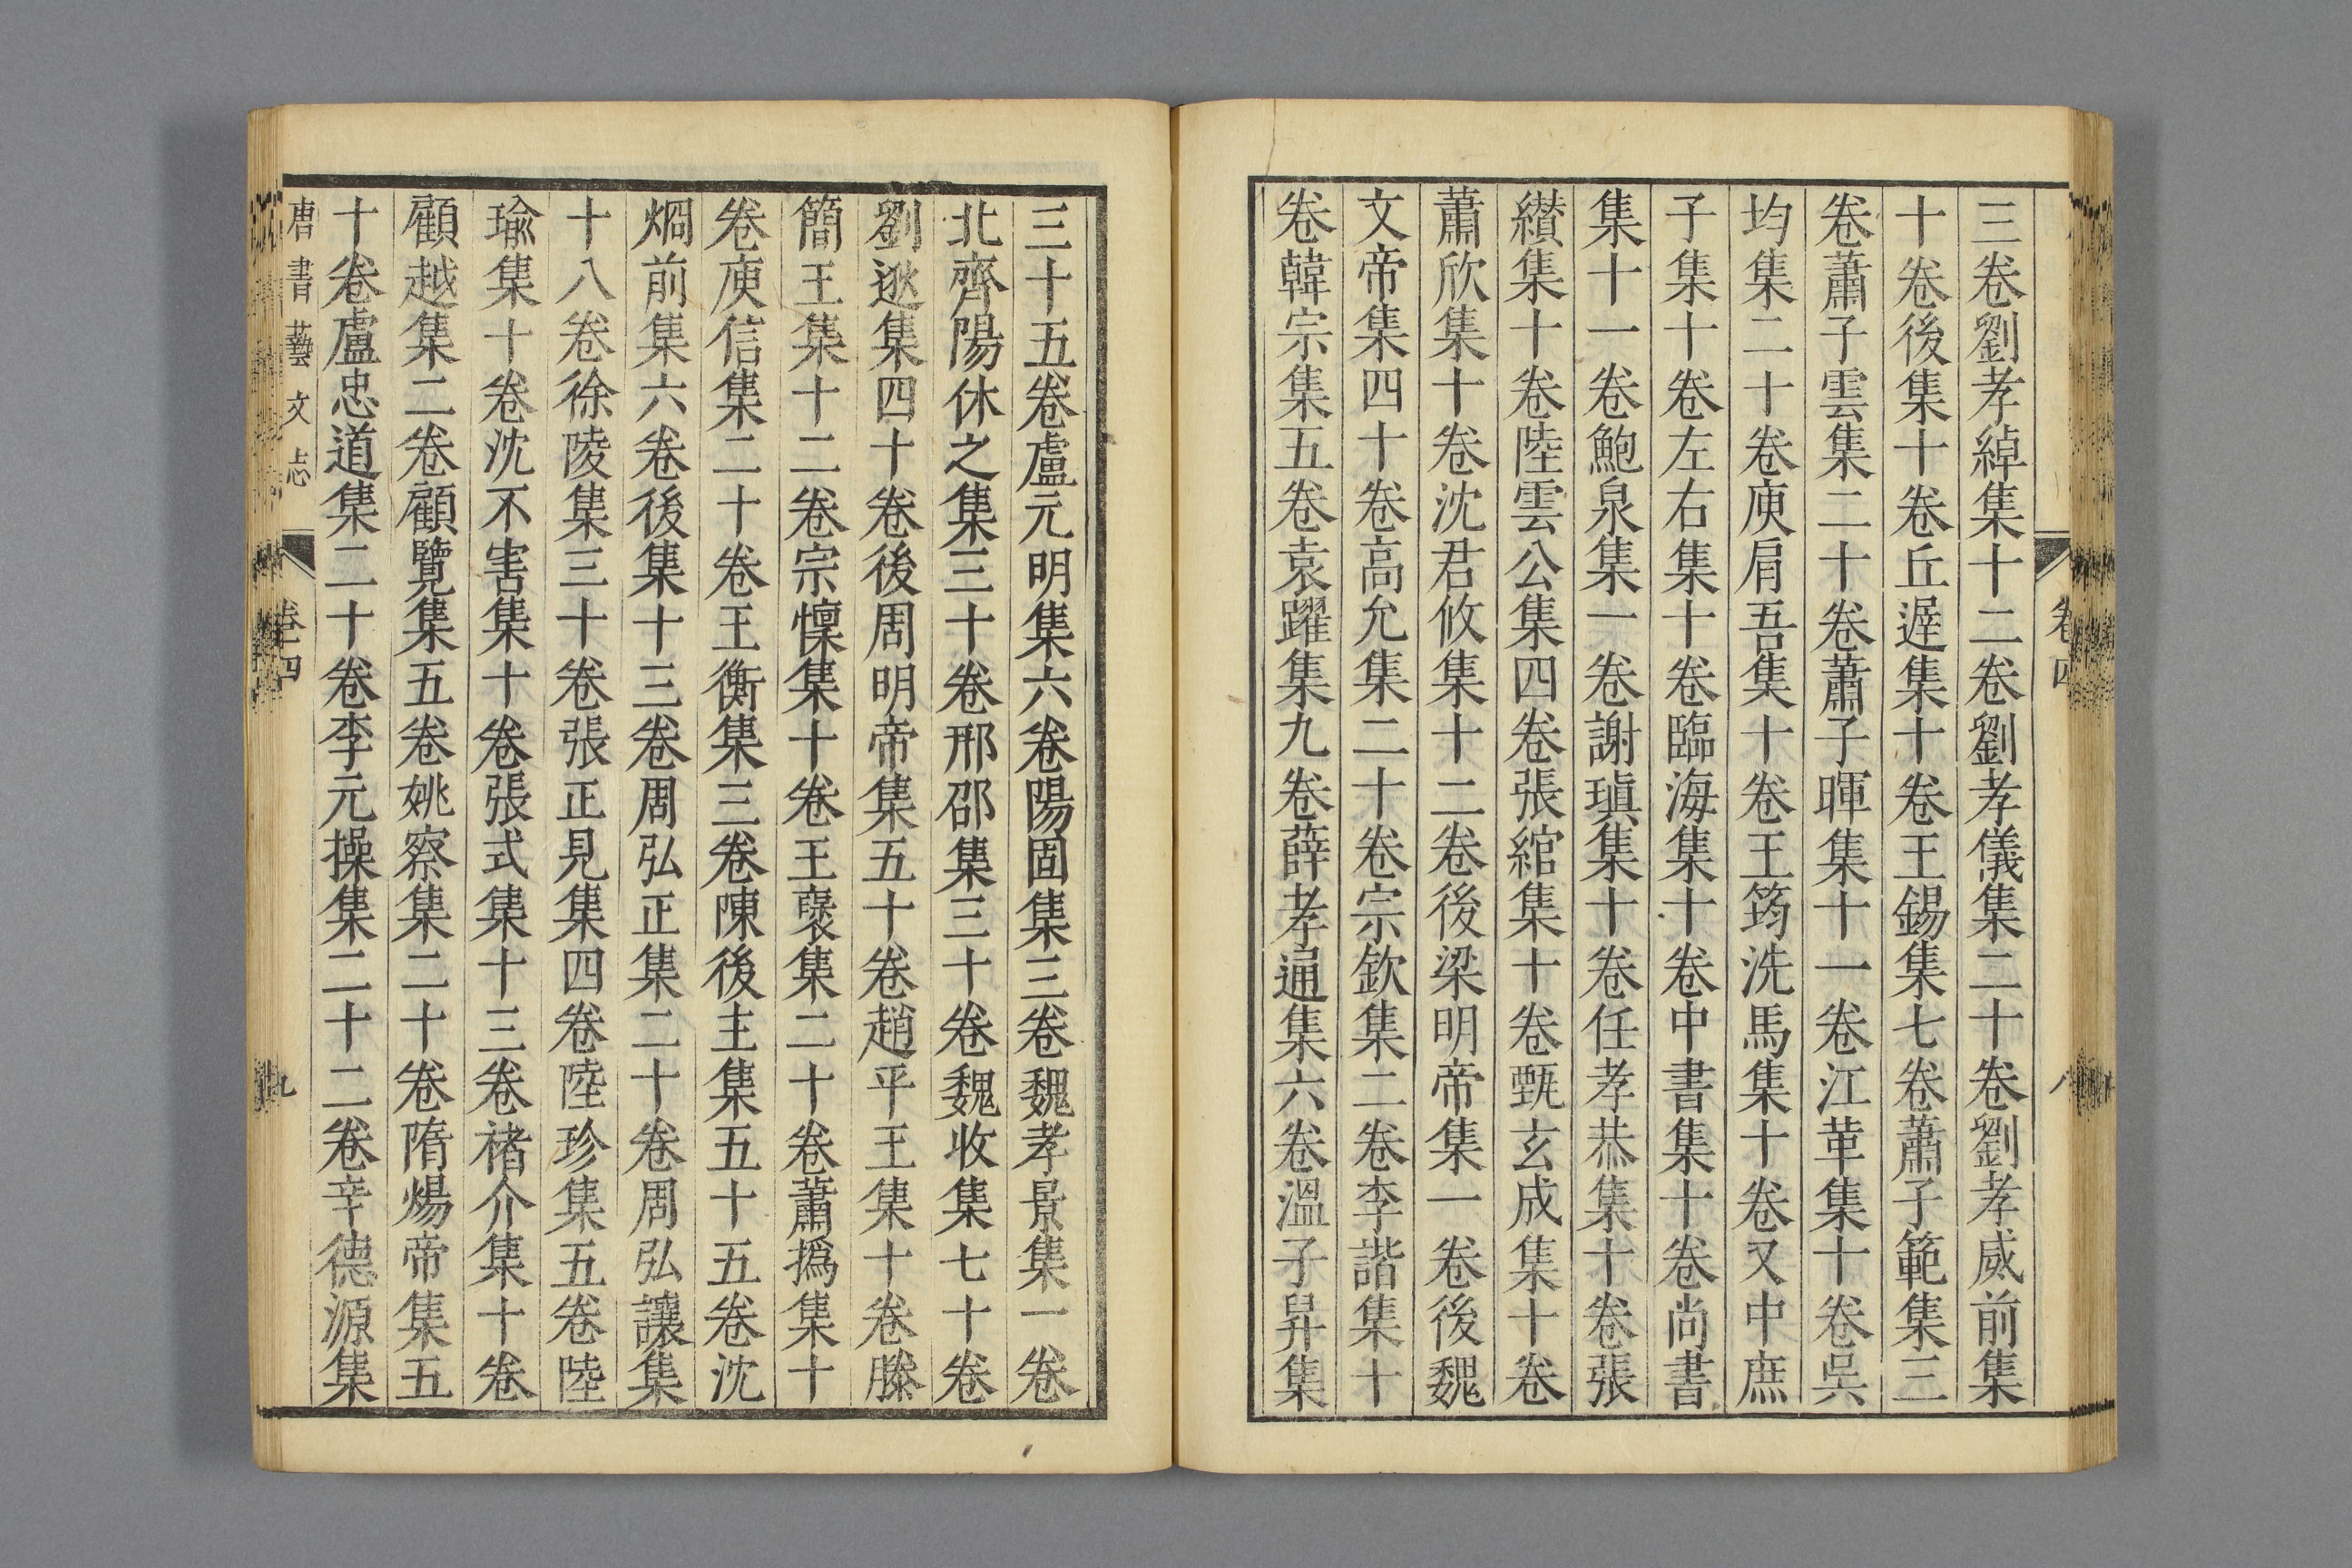 三卷劉孝綽集十二卷劉孝儀集二十卷劉孝威前集
十卷後集十卷丘遲集十卷王錫集七卷蕭子範集三
卷蕭子雲集二十卷蕭子暉集十一卷江革集十卷吳
均集二十卷庾肩吾集十卷王筠洗馬集十卷又中庶
子集十卷左右集十卷臨海集十卷中書集十卷尚書
集十一卷鮑泉集一卷謝瑱集十卷任孝恭集十卷張
纘集十卷陸雲公集四卷張綰集十卷甄玄成集十卷
蕭欣集十卷沈君攸集十二卷後梁明帝集一卷後魏
文帝集四十卷高允集二十卷宗欽集二卷李諧集十
卷韓宗集五卷袁躍集九卷薛孝通集六卷溫子昇集
卷四
八
三十五卷盧元明集六卷陽固集三卷魏孝景集一卷
北齊陽休之集三十卷邢邵集三十卷魏收集七十卷
劉逖集四十卷後周明帝集五十卷趙平王集十卷滕
簡王集十二卷宗懍集十卷王褒集二十卷蕭撝集十
卷庾信集二十卷王衡集三卷陳後主集五十五卷沈
烱前集六卷後集十三卷周弘正集二十卷周弘讓集
十八卷徐陵集三十卷張正見集四卷陸珍集五卷陸
瑜集十卷沈不害集十卷張式集十三卷褚介集十卷
顧越集二卷顧覽集五卷姚察集二十卷隋煬帝集五
十卷盧忠道集二十卷李元操集二十二卷辛德源集
唐書藝文志
卷四
九